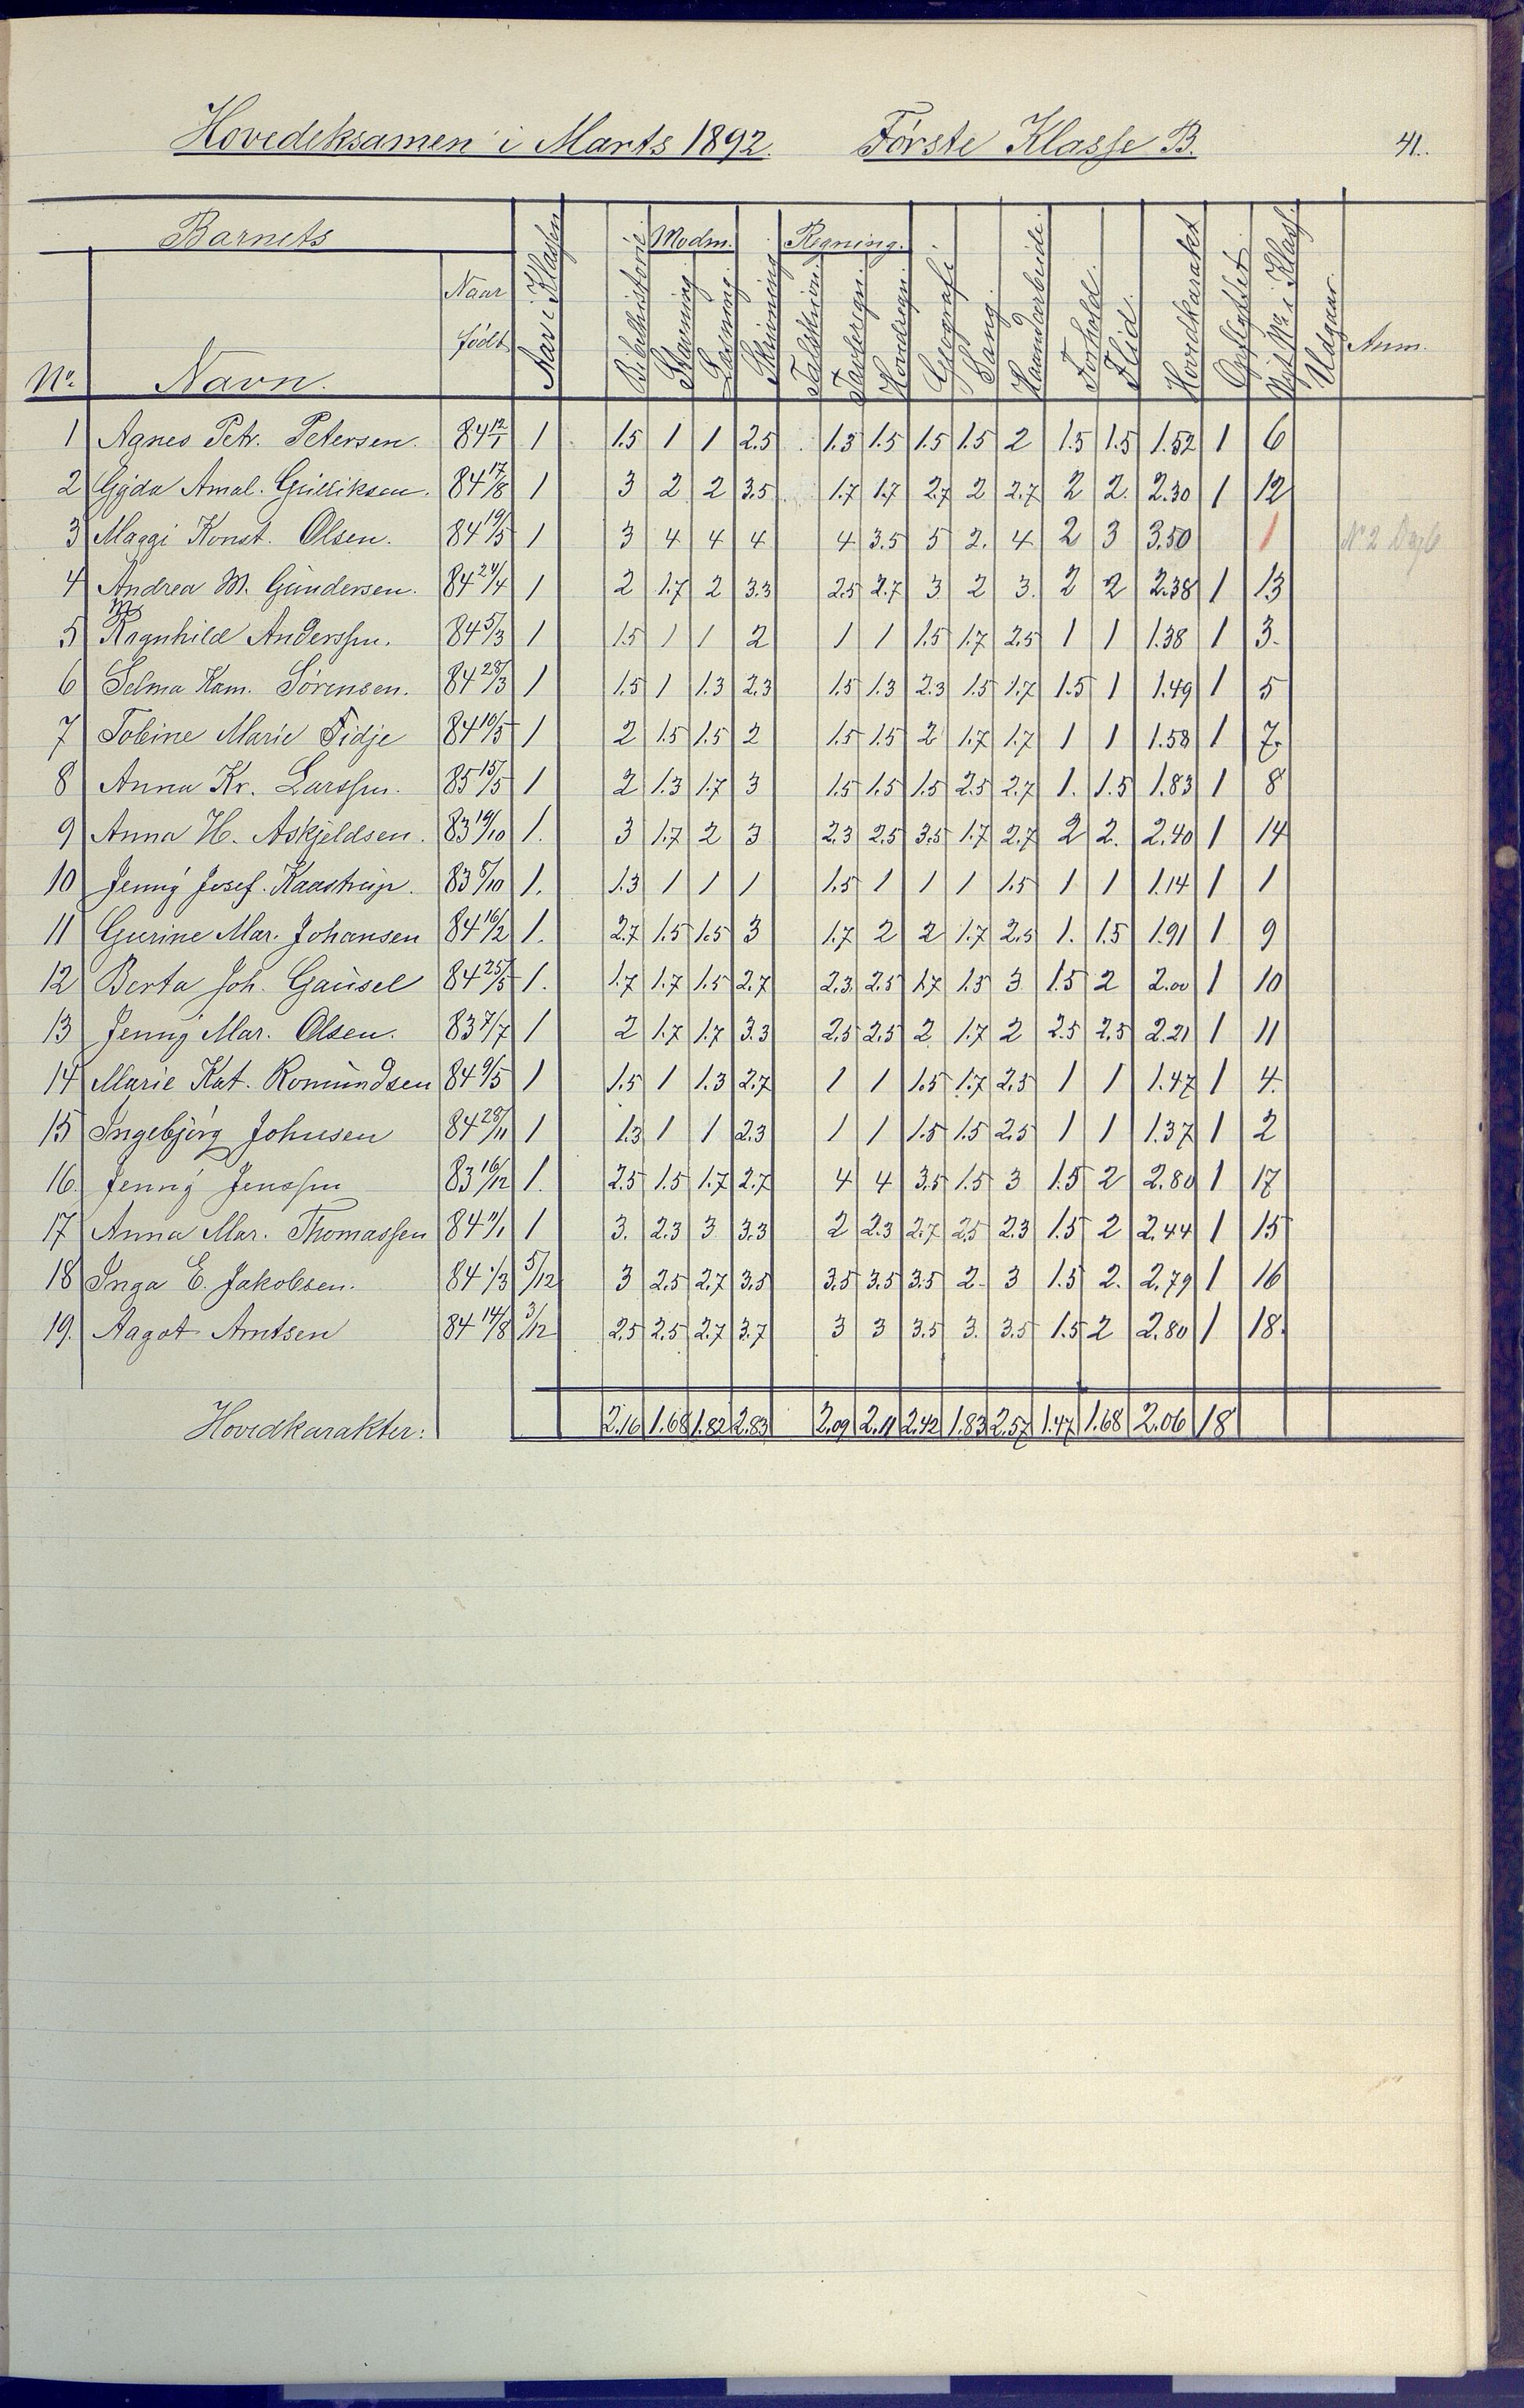 Hovedeksamen i Marts 1892. Første Klasse B. 41.
Barnets Modm. Regning.
No. Navn. Naar født Aar i Klassen Bibelhistorie Stavning Læsning Skrivning Talskrivn. Tavleregn. Hovedregn. Geografi Sang. Haandarbeide Forhold. Flid. Hovedkarakt. Opflyttet. Nyt No. i Klass. Udgaar. Anm.
1 Agnes Petr. Petersen. 84 12/1 1 1.5 1 1 2.5 1.3 1.5 1.5 1.5 2 1.5 1.5 1.52 1 6
2 Gyda Amal. Gulliksen. 84 17/8 1 3 2 2 3.5 1.7 1.7 2.7 2 2.7 2 2. 2.30 1 12
3 Maggi Konst. Olsen. 84 19/5 1 3 4 4 4 4 3.5 5 2. 4 2 3 3.50 1 No 2
4 Andrea M. Gundersen. 84 24/4 1 2 1.7 2 3.3 2.5 2.7 3 2 3. 2 2 2.38 1 13
5 Ragnhild Anderssen. 84 5/3 1 1.5 1 1 2 1 1 1.5 1.7 2.5 1 1 1.38 1 3.
6 Selma Kam. Sørensen. 84 28/3 1 1.5 1 1.3 2.3 1.5 1.3 2.3 1.5 1.7 1.5 1 1.49 1 5
7 Tobine Marie Tidje 84 10/5 1 2 1.5 1.5 2 1.5 1.5 2 1.7 1.7 1 1 1.58 1 7.
8 Anna Kr. Larssen. 85 15/5 1 2 1.3 1.7 3 1.5 1.5 1.5 2.5 2.7 1. 1.5 1.83 1 8
9 Anna H. Askjeldsen. 83 19/10 1. 3 1.7 2 3 2.3 2.5 3.5 1.7 2.7 2 2. 2.40 1 14
10 Jenny Josef. Kaastrup. 83 5/10 1. 1.3 1 1 1 1.5 1 1 1 1.5 1 1 1.14 1 1
11 Gurine Mar. Johansen 84 16/2 1. 2.7 1.5 1.5 3 1.7 2 2 1.7 2.5 1. 1.5 1.91 1 9
12 Berta Joh. Gausel 84 25/5 1. 1.7 1.7 1.5 2.7 2.3 2.5 1.7 1.5 3 1.5 2 2.00 1 10
13 Jenny Mar. Olsen. 83 7/7 1 2 1.7 1.7 3.3 2.5 2.5 2 1.7 2 2.5 2.5 2.21 1 11
14 Marie Kat. Romundsen 84 9/5 1 1.5 1 1.3 2.7 1 1 1.5 1.7 2.5 1 1 1.47 1 4.
15 Ingebjørg Johnsen 84 28/11 1 1.3 1 1 2.3 1 1 1.5 1.5 2.5 1 1 1.37 1 2
16. Jenny Jenssen 83 16/12 1. 2.5 1.5 1.7 2.7 4 4 3.5 1.5 3 1.5 2 2.80 1 17
17 Anna Mar. Thomassen 84 11/1 1 3. 2.3 3 3.3 2 2.3 2.7 2.5 2.3 1.5 2 2.44 1 15
18 Inga E. Jakobsen. 84 1/3 5/12 3 2.5 2.7 3.5 3.5 3.5 3.5 2. 3 1.5 2. 2.79 1 16
19. Aagot Arntsen 84 14/8 3/12 2.5 2.5 2.7 3.7 3 3 3.5 3. 3.5 1.5 2 2.80 1 18.
Hovedkarakter: 2.16 1.68 1.82 2.83 2.09 2.11 2.42 1.83 2.57 1.47 1.68 2.06 18